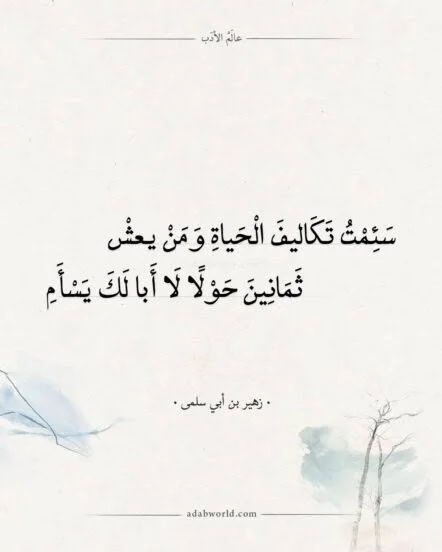 عالَمُ الأدَب
سَئِمْتُ تَكَاليفَ الْحَياةِ وَمَنْ يعشْ
ثَمَانِينَ حَوْلًا لَا أَبا لَكَ يَسْأَمِ
• زهير بن أبي سلمى •
adabworld.com